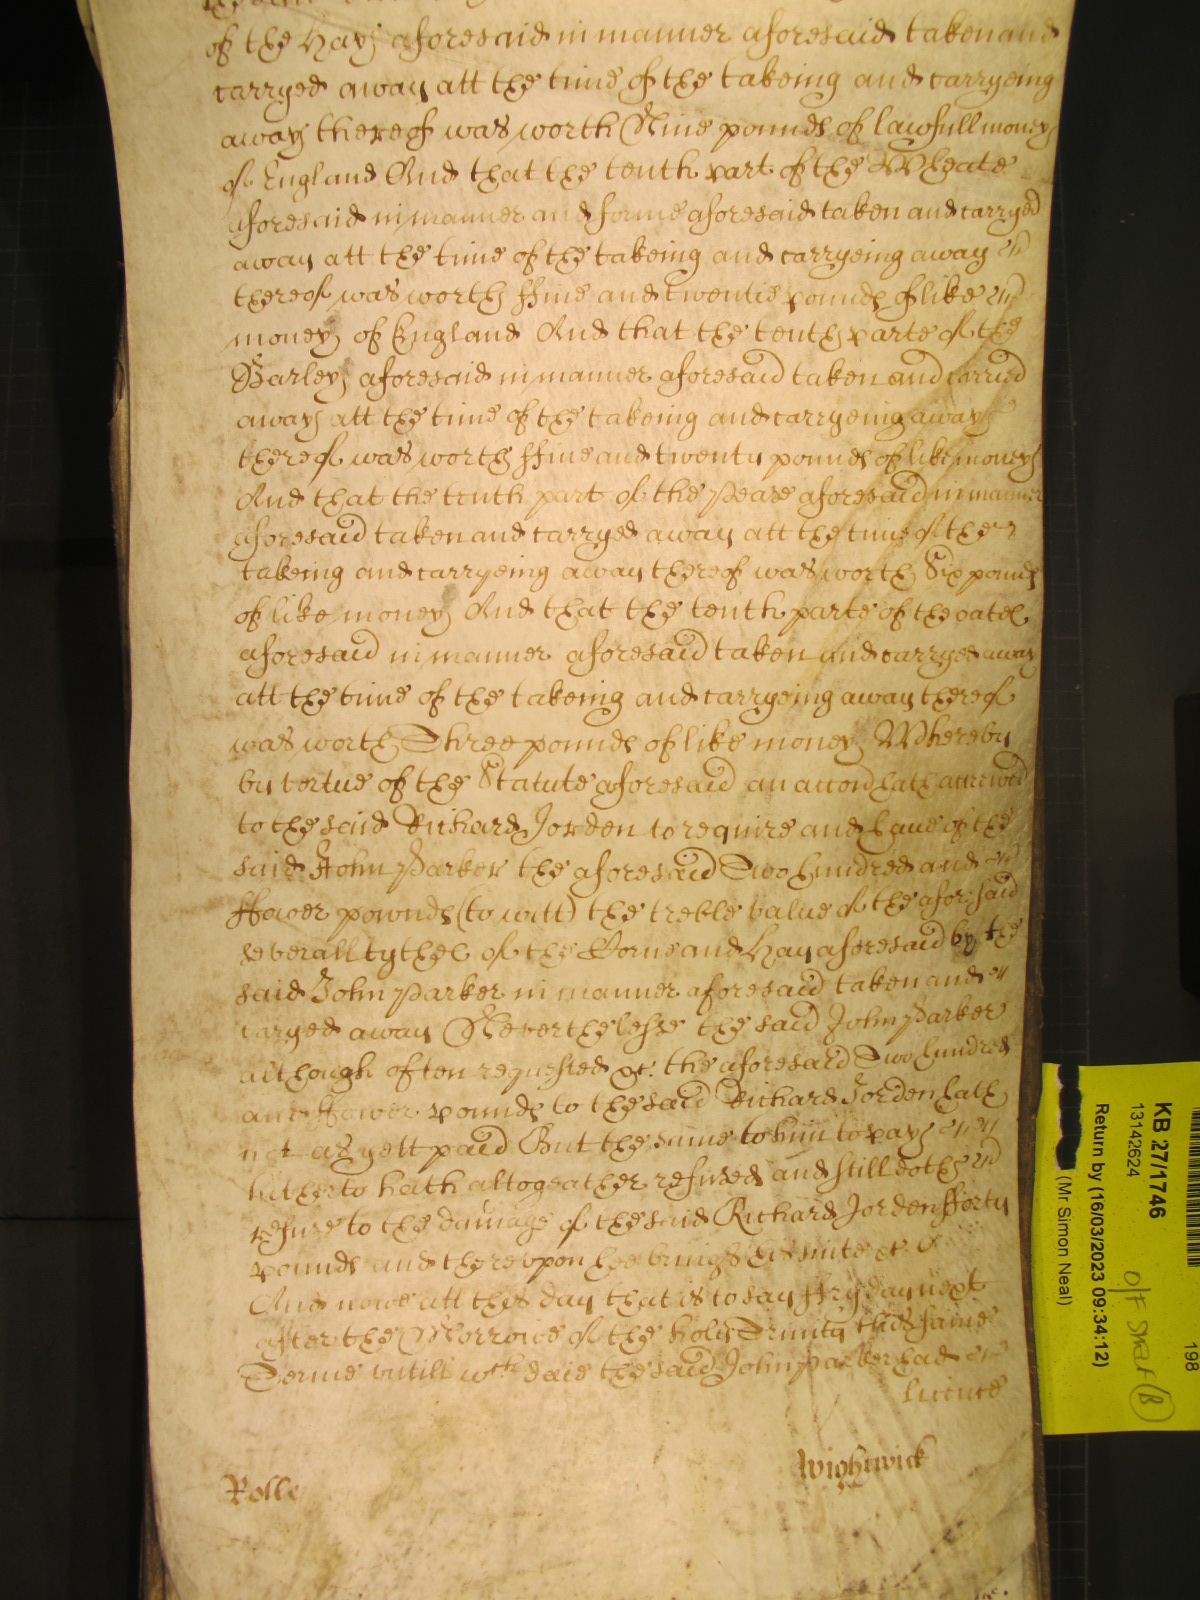 of the Hay aforesaid in manner aforesaid taken and
carryed away att the time of the takeing and carryeing
away thereof was worth Nine pounds of lawfull money
of England And that the tenth part of the Wheate
aforesaid in manner and forme aforesaid taken and carryed
away att the time of the takeing and carryeing away
thereof was worth ffive and twentie pounds of like
money of England And that the tenth parte of the
Barley aforesaid in manner aforesaid taken and carried
away att the time of the takeing and carryeing away
thereof was worth ffive and twenty pounds of like money
And that the tenth part of the Pease aforesaid in manner
aforesaid taken and carryed away att the time of the
takeing and carryeing away thereof was worth Six pounds
of like money And that the tenth parte of the oates
aforesaid in manner aforesaid taken and carryed away
att the time of the takeing and carryeing away thereof
was worth Three pounds of like money Whereby
by vertue of the Statute aforesaid an accon hath accrued
to the said Richard Jorden to require and have of the
said John Parker the aforesaid Two hundred and
ffower pownds (to witt) the treble value of the aforesaid
severall tythes of the Corne and Hay aforesaid by the
said John Parker in manner aforesaid taken and
caryed away Neverthelesse the said John Parker
although often requested &c. the aforesaid Two hundred
and ffower pounds to the said Richard Jorden hath
not as yett paid But the same to him to pay
hitherto hath altogeather refused and still doth
refuse to the damage of the said Richard Jorden fforty
pounds and thereupon hee brings his suite &c.
And nowe att this day that is to say ffryday next
after the Morrowe of the holy Trinity this same
Terme untill wch daie the said John Parker had
licence
Rolle
Wightwick
KB 27/1746
13142624
Return by (16/03/2023 09:34:12)
(Mr Simon Neal)
198
O/F Smart (B)